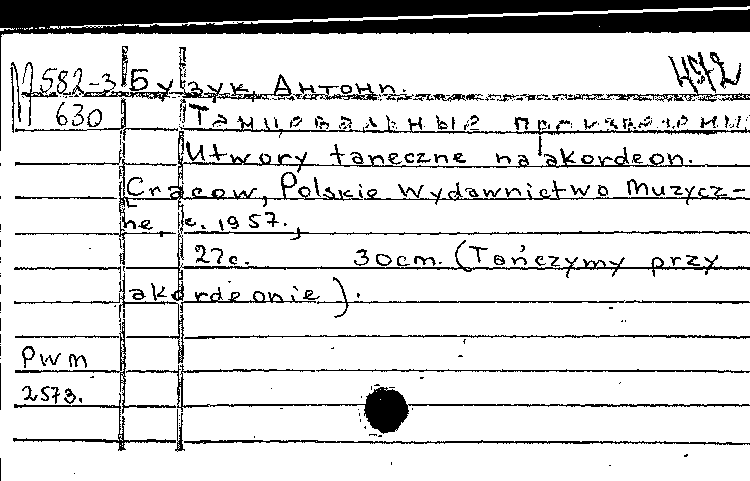 472
М 582-3 Бузук, Антони.
630 Танцевальные произведения
Utwory taneczne na akordeon.
Cracow, Polskie Wydawnictwo Muzycz-
ne, c. 1957.,
27c. 30cm. (Tańczymy przy
akordeonie).
PWM
2573.